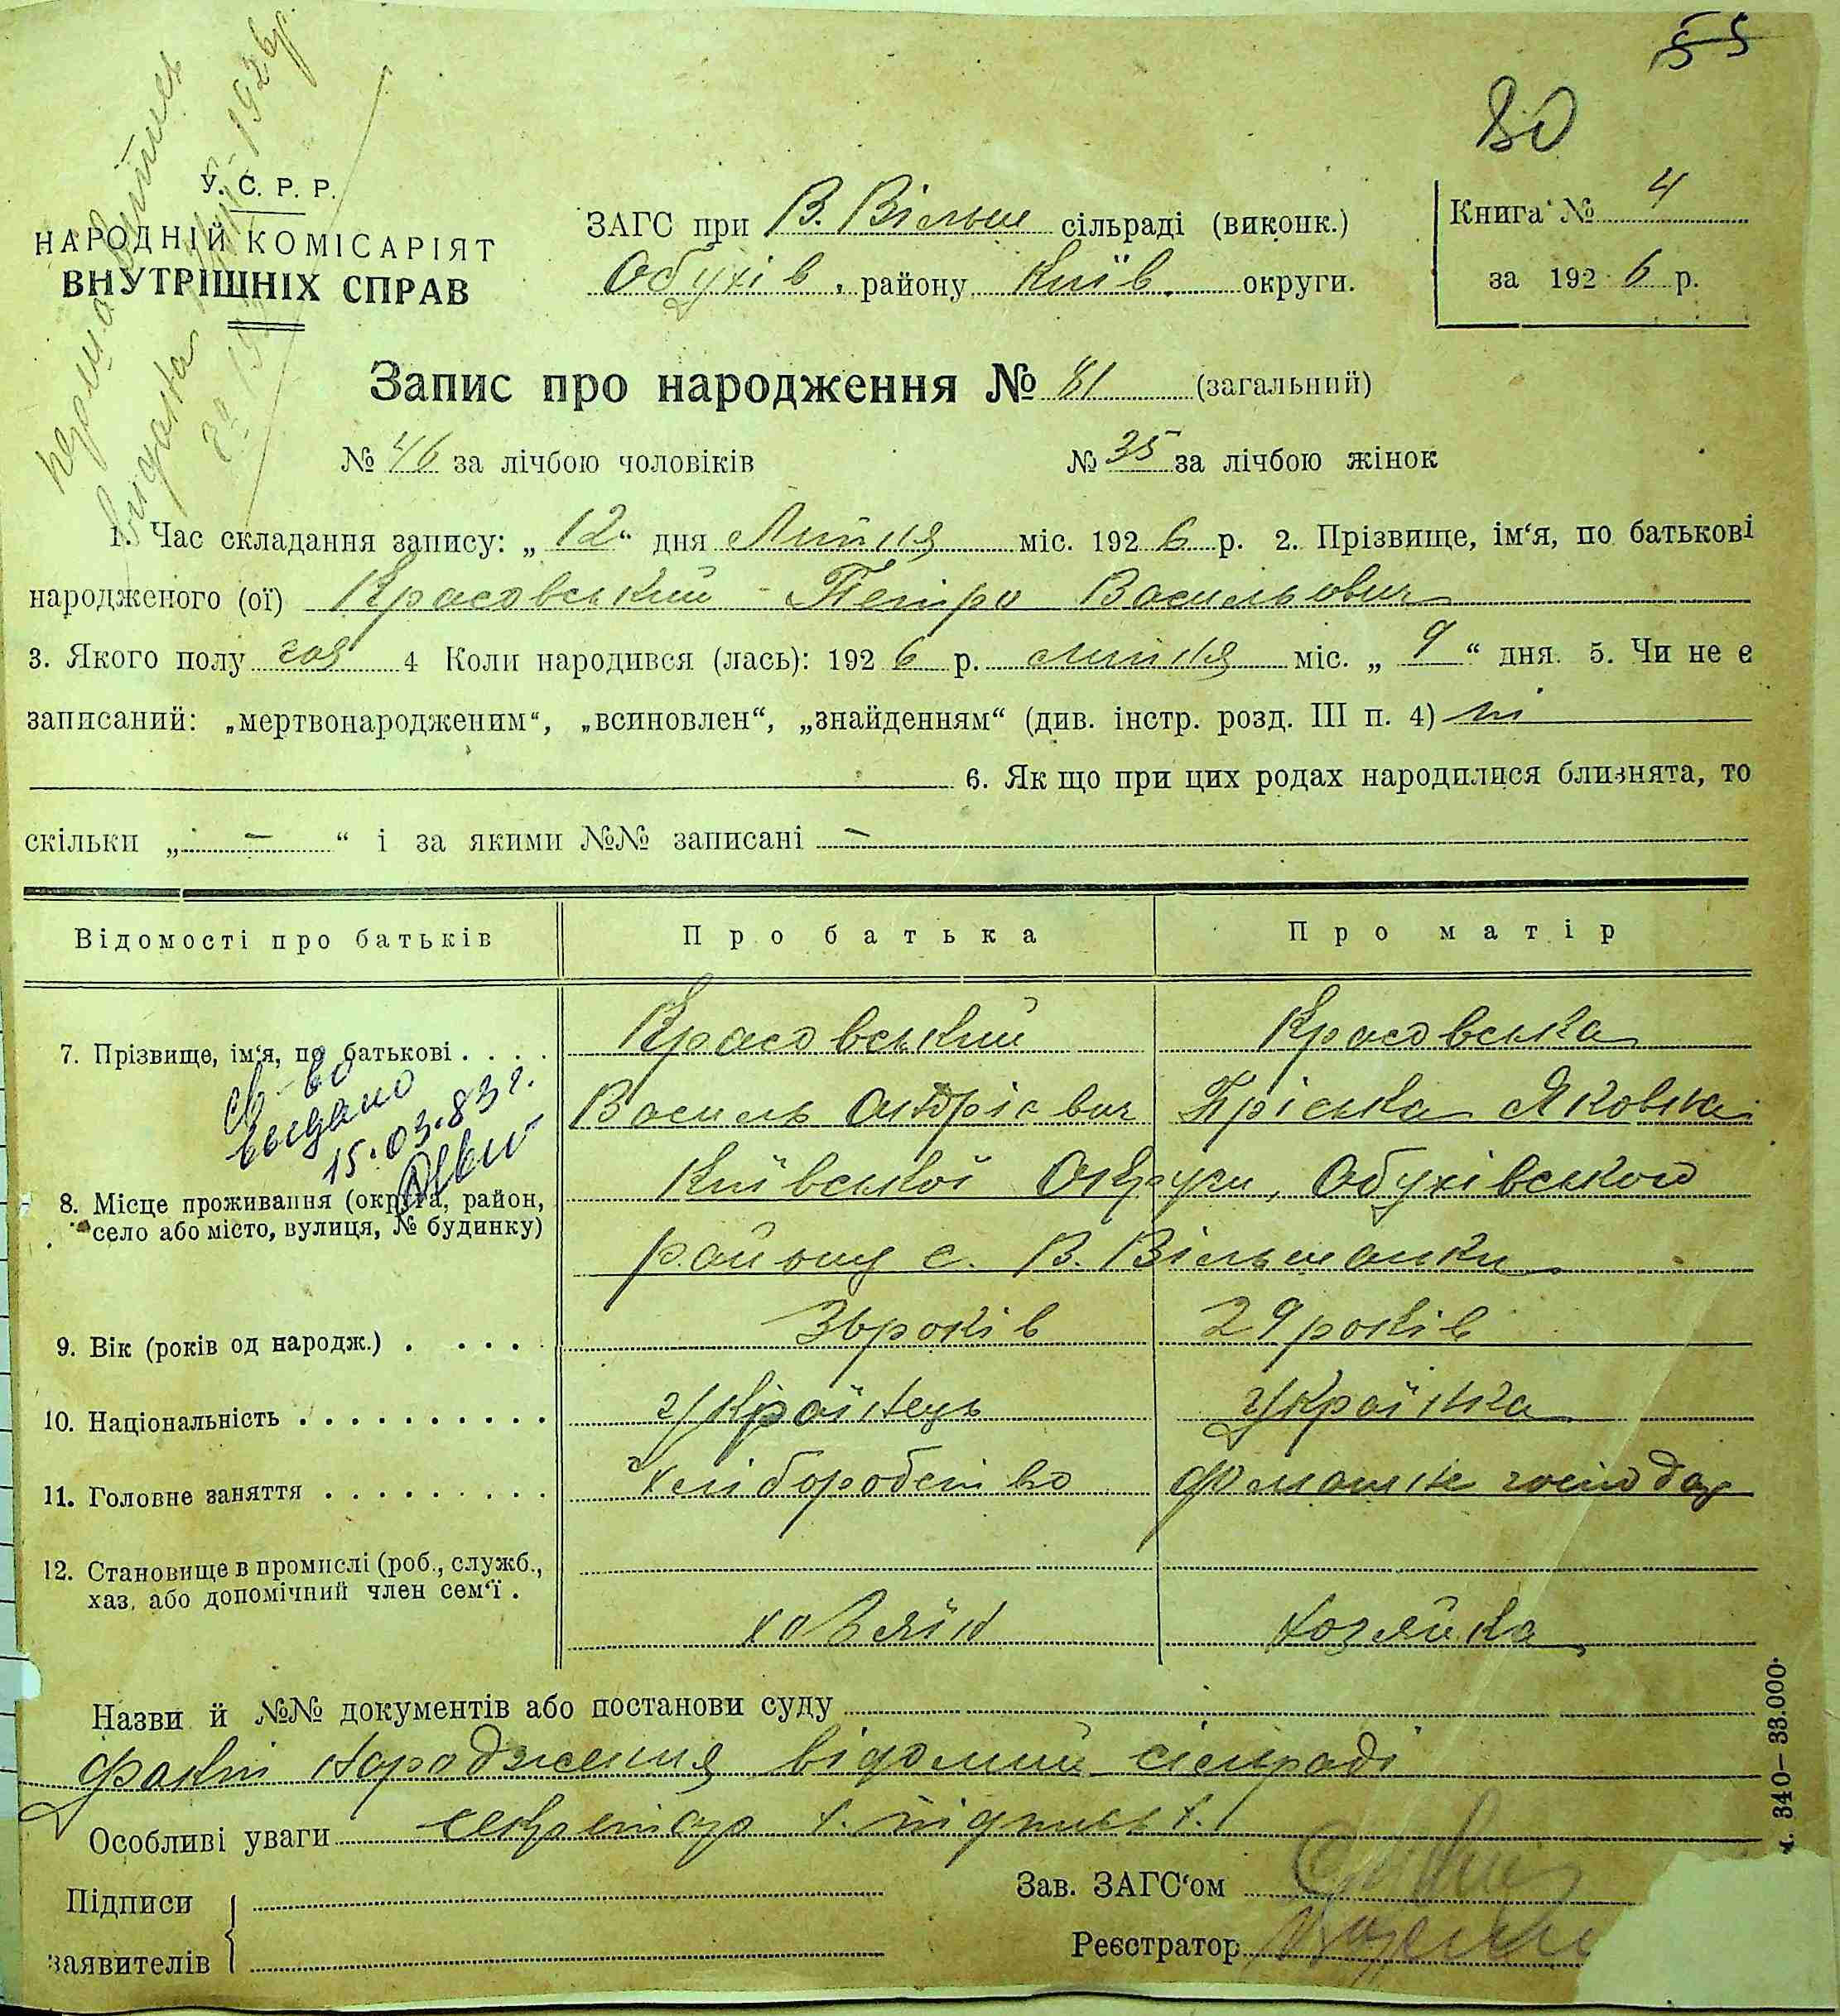 55
80
У. С. Р. Р.
НАРОДНІЙ КОМІСАРІЯТ
ВНУТРІШНІХ СПРАВ
ЗАГС при В. Вільш сільраді (виконк.)
Обухів. району Київ. округи.
Книга № 4
за 1926 р.
Запис про народження № 81 (загальний)
№ 46 за лічбою чоловіків № 35 за лічбою жінок
1. Час складання запису: „12“ дня Липня міс. 1926 р. 2. Прізвище, ім‘я, по батькові
народженого (ої) Красовський Петро Васильович
3. Якого полу чол 4 Коли народився (лась): 1926 р. липня міс. „9“ дня. 5. Чи не є
записаний: „мертвонародженим“, „всиновлен“, „знайденням“ (див. інстр. розд. III п. 4) ні
6. Як що при цих родах народилися близнята, то
скільки „ — “ і за якими №№ записані —
Відомості про батьків Про батька Про матір
7. Прізвище, ім‘я, по батькові . . . . Красовський Красовська
Василь Андрієвич Пріська Яковна
св-во
выдано
15.03.83 г.
8. Місце проживання (округа, район,
село або місто, вулиця, № будинку)
Київської Округи, Обухівського
району с. В. Вільшанки
9. Вік (років од народж.) . . . . . 36 років 29 років
10. Національність . . . . . . . . . . Українець Українка
11. Головне заняття . . . . . . . . . хліборобство домашнє господар
12. Становище в промислі (роб., служб.,
хаз. або допомічний член сем‘ї .
хозяїн хозяйка
Назви й №№ документів або постанови суду
факт народження відомий сільраді
Особливі уваги секретар підпись
Підписи
заявителів
Зав. ЗАГС‘ом
Реєстратор
ч. 340—33.000.